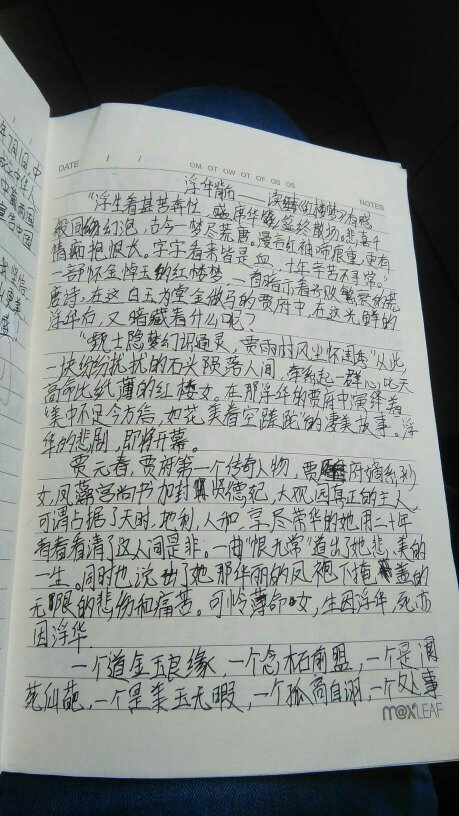 DATE / /
OM OT OW OT OF OS OS
NOTES
浮华背后——读《红楼梦》有感
“浮生着甚苦奔忙,盛席华筵终散场,悲喜千
般同幻泡,古今一梦尽荒唐。漫言红袖啼痕重,更有
情痴抱恨长。字字看来皆是血,十年辛苦不寻常。”
一部怀金悼玉的红楼梦 一首暗示着予败繁荣的荒
唐诗,在这白玉为堂金做马的贾府中,在这光鲜的
浮华后,又暗藏着什么呢?
“甄士隐梦幻识通灵,贾雨村风尘怀闺秀”从此
一块纷纷扰扰的石头陨落人间,牵起一群心比天
高命比纸薄的红楼女。在那浮华的贾府中演绎着
“美中不足今方信,如花美眷空蹉跎”的凄美故事。浮
华的悲剧,即将开幕。
贾元春,贾府第一个传奇人物,贾府嫡系孙
女,凤藻宫尚书加封贤德妃,大观园真正的主人
可谓占据了天时,地利,人和,享尽荣华的她,用二十年
看着看清了这人间是非。一曲“恨无常”道出了她悲美的
一生。同时也说出了她那华丽的凤袍下掩盖的
无限的悲伤和痛苦。可怜薄命女,生因浮华,死亦
因浮华.
一个道金玉良缘,一个念木石前盟,一个是阆
苑仙葩,一个是美玉无暇,一个孤高自诩,一个处事
m@xLEAF